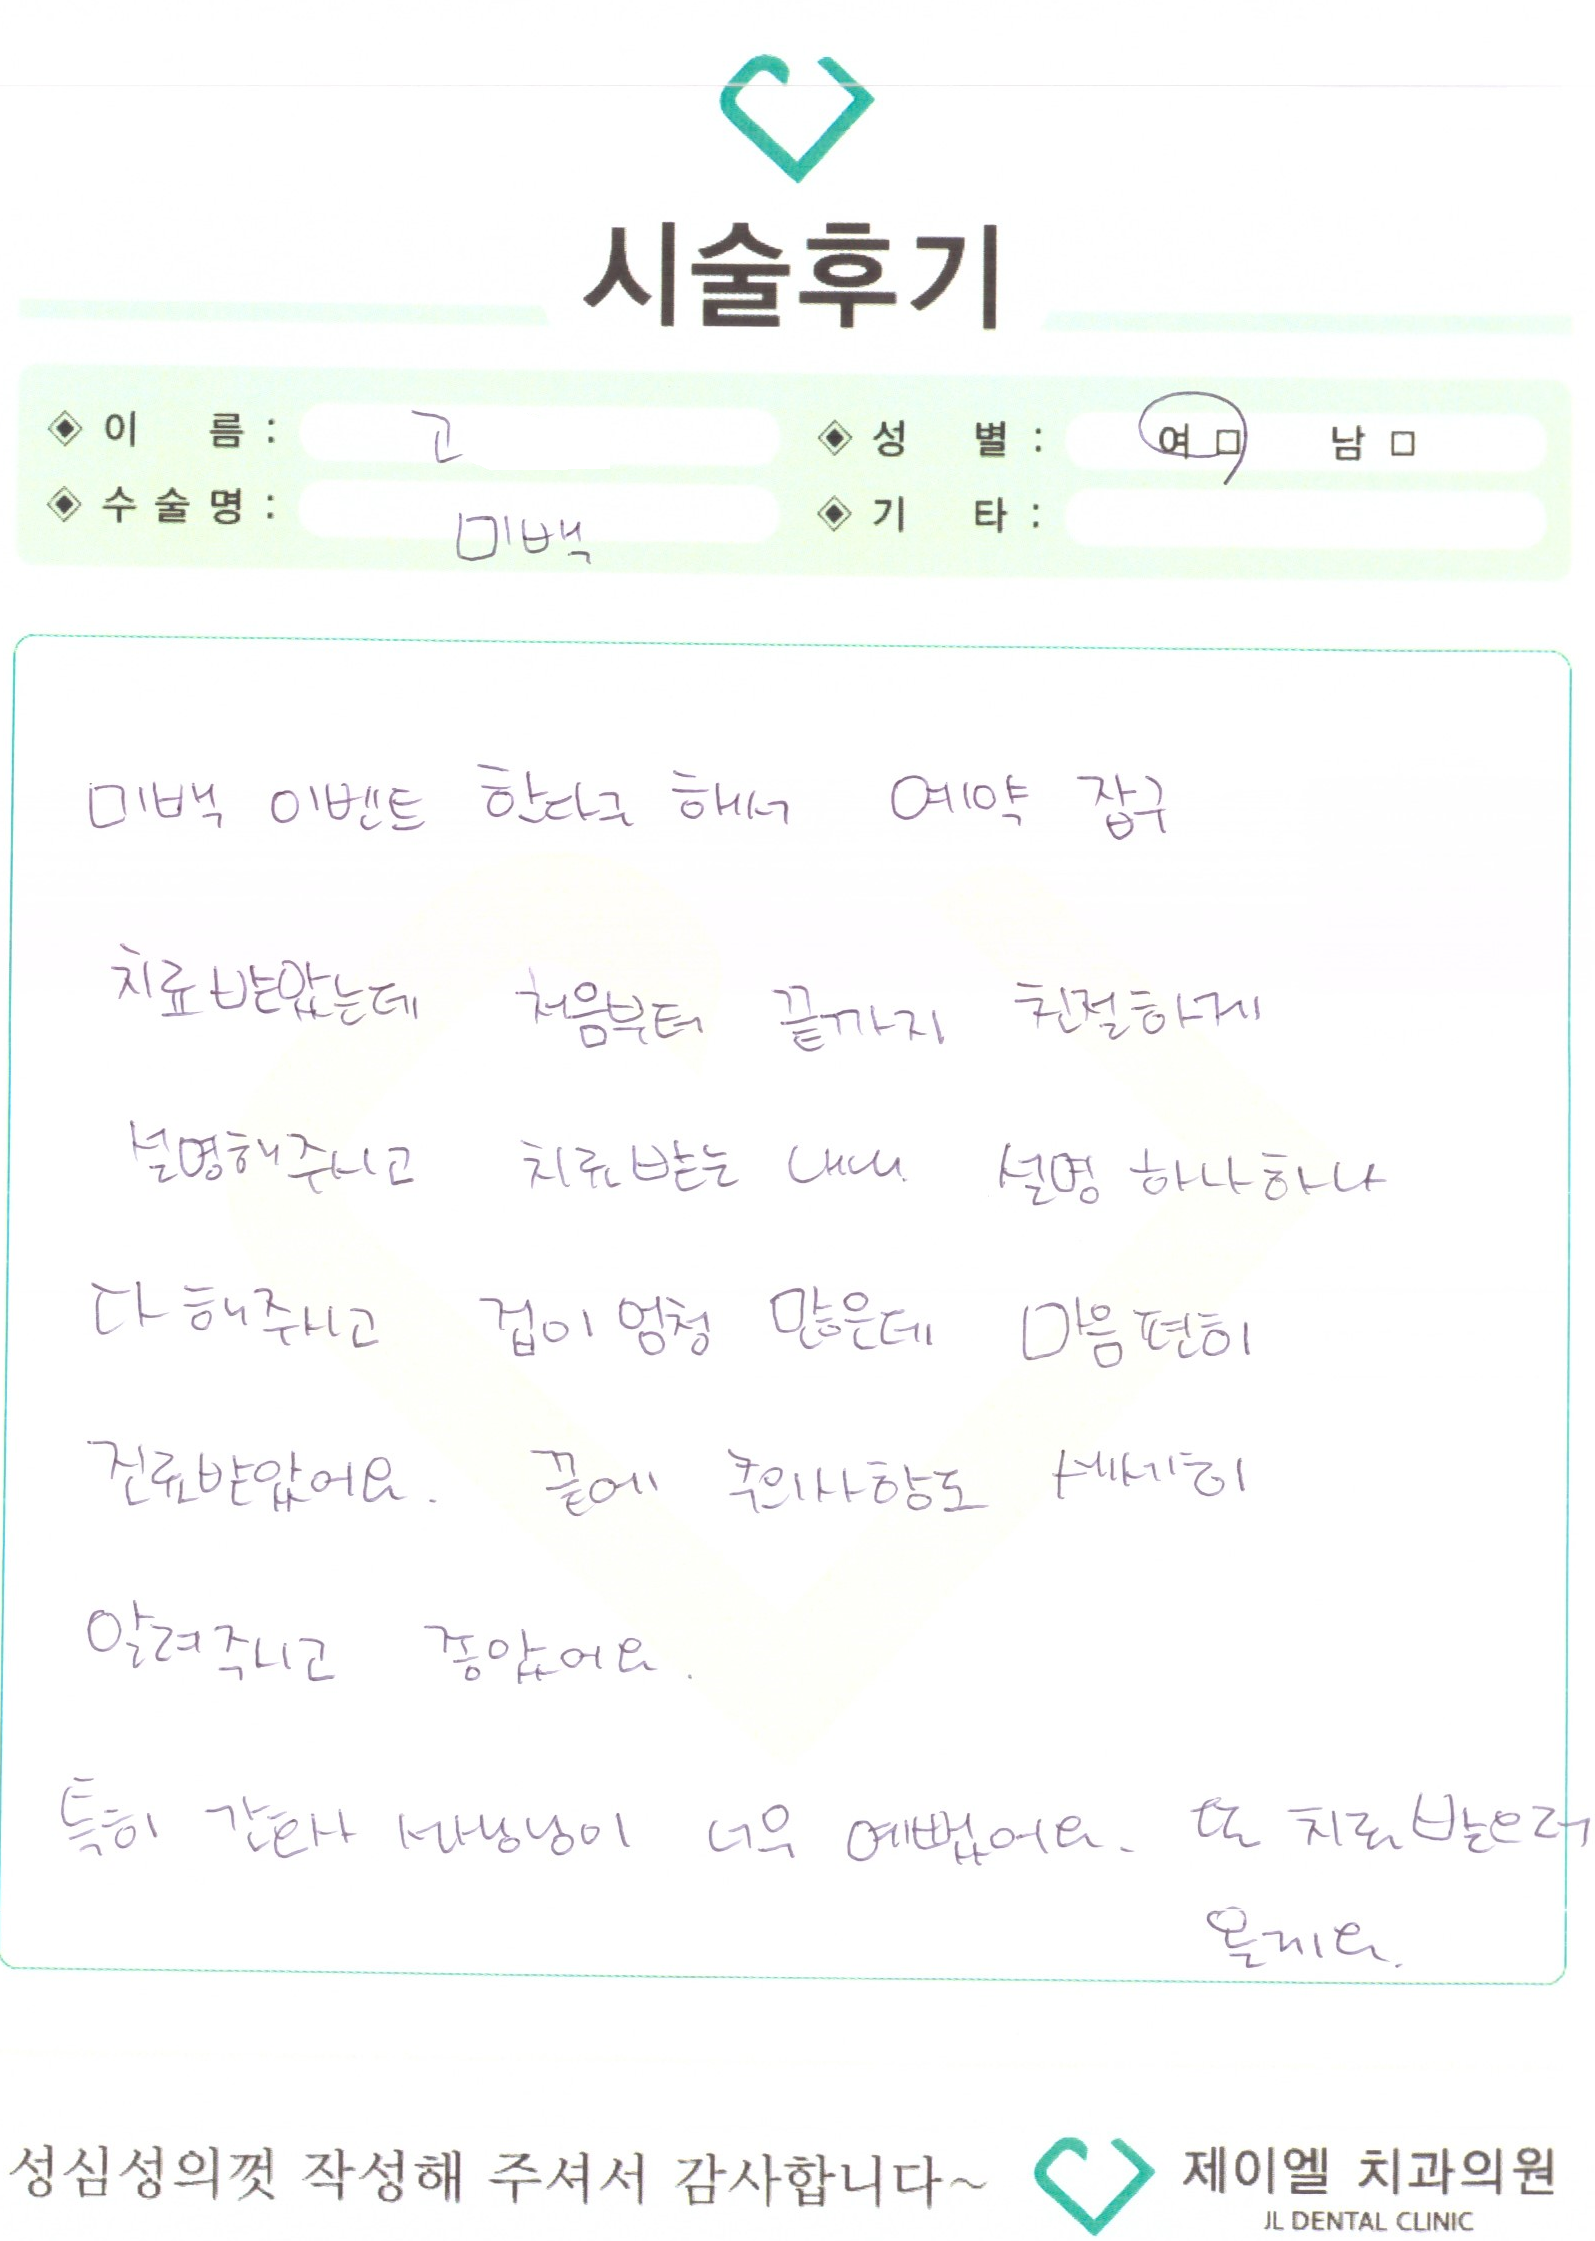 시술후기
◈ 이 름 : 고 ◈ 성 별 : 여 □ 남 □
◈ 수 술 명 : 미백 ◈ 기 타 :
미백 이벤트 한다구 해서 예약 잡구
치료받았는데 처음부터 끝까지 친절하게
설명해주시고 치료받는 내내 설명 하나하나
다 해주시고 겁이 엄청 많은데 마음 편히
진료받았어요. 끝에 주의사항도 세세히
알려주시고 좋았어요.
특히 간호사 선생님이 너무 예뻤어요. 또 치료 받으러
올게요.
성심성의껏 작성해 주셔서 감사합니다~ 제이엘 치과의원
JL DENTAL CLINIC